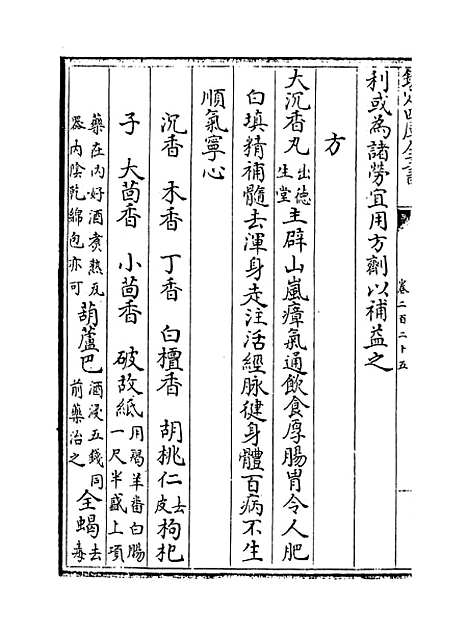 欽定四庫全書 卷二百二十五
利或為諸勞宜用方劑以補益之
方
大沉香丸出德生堂主辟山嵐瘴氣通飲食厚腸胃令人肥
白填精補髓去渾身走注活經脉健身體百病不生
順氣寧心
沉香 木香 丁香 白檀香 胡桃仁去皮 枸杞
子 大茴香 小茴香 破故紙用羯羊番白腸一尺半盛上項
藥在內好酒煮熟瓦器內陰乾綿包亦可 葫蘆巴酒浸五錢同前藥治之 全蝎去毒